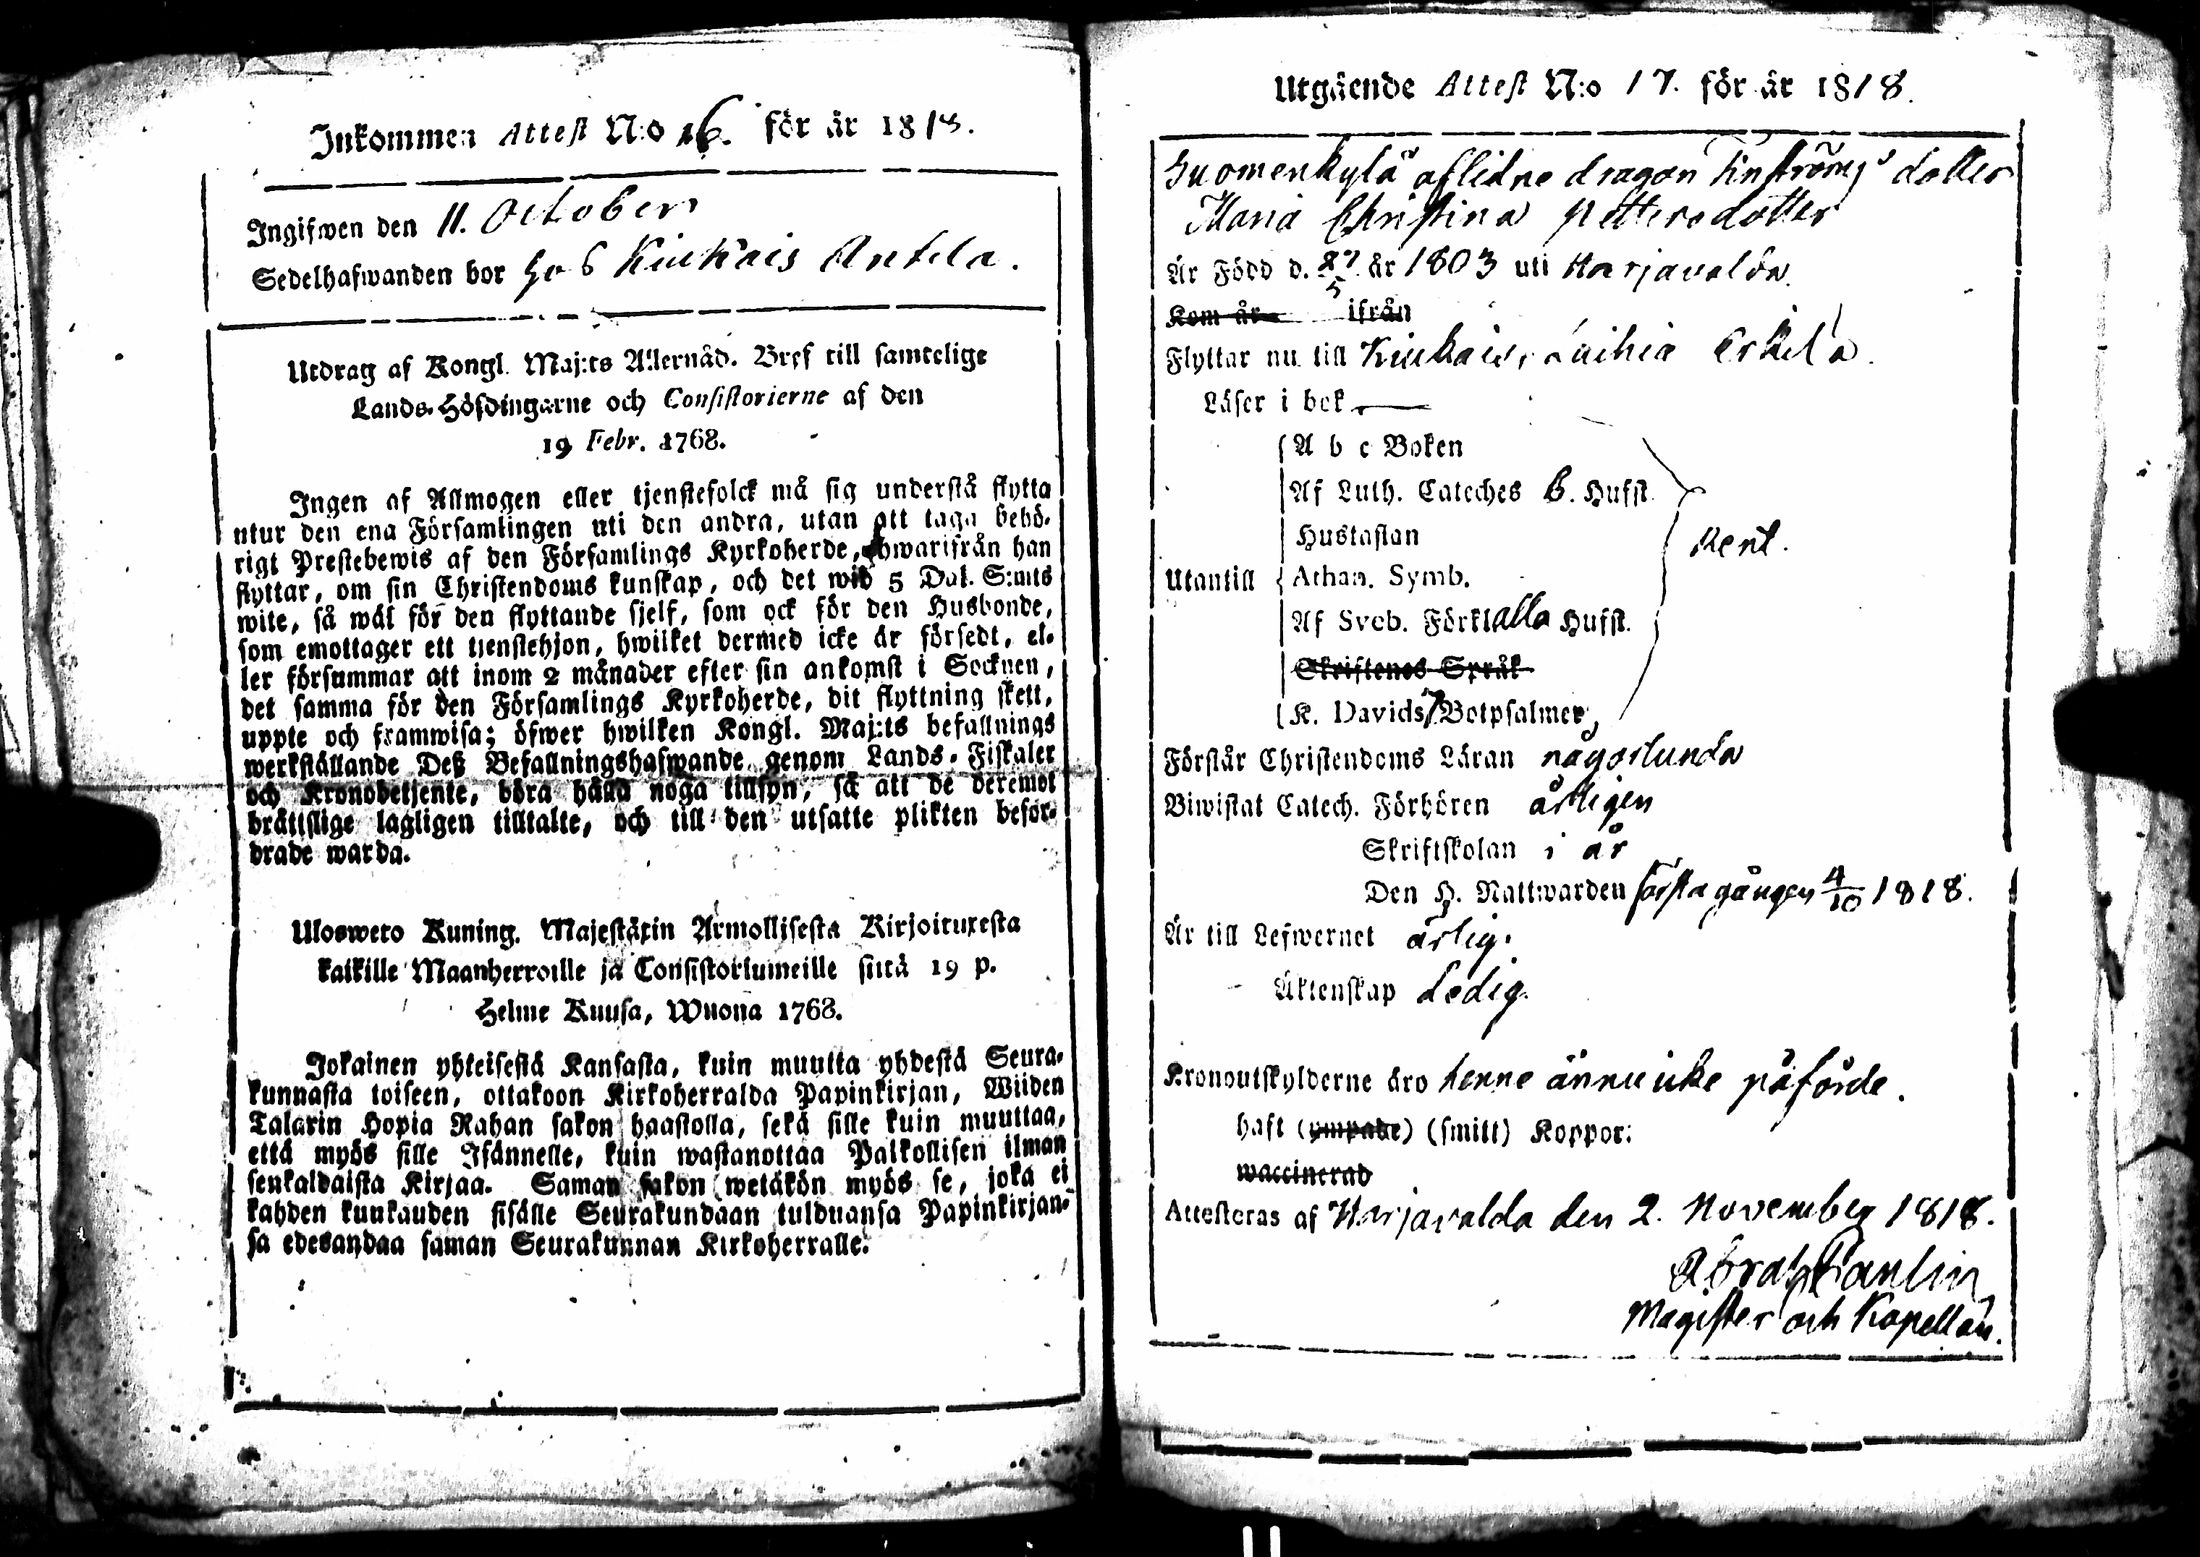 Inkommen Attest N:o 16. för år 1818.
Ingifwen den 11. October
Sedelhafwanden bor hos Kiukais Antela.
Utdrag af Kongl. Maj:ts Allernåd. Bref till samtelige
Lands-Höfdingarne och Consistorierne af den
19 Febr. 1768.
Ingen af Allmogen eller tjenstefolck må sig understå flytta
utur den ena Församlingen uti den andra, utan att taga behö-
rigt Prestebewis af den Församlings Kyrkoherde, hwarifrån han
flyttar, om sin Christendoms kunskap, och det wid 5 Dal. S:mts
wite, så wäl för den flyttande sjelf, som ock för den Husbonde,
som emottager ett tjenstehjon, hwilket dermed icke är försedt, el-
ler försummar att inom 2 månader efter sin ankomst i Socknen,
det samma för den Församlings Kyrkoherde, dit flyttning skett,
uppte och framwisa; öfwer hwilken Kongl. Maj:ts befallnings
werkställande Deß Befallningshafwande genom Lands-Fiskaler
och Kronobetjente, böra hålla noga tillsyn, så att de deremot
brättslige lagligen tilltalte, och till den utsatte plikten beför-
drade warda.
Ulosweto Kuning. Majestätin Armollisesta Kirjoituxesta
kaikille Maanherroille ja Consistoriumeille siitä 19 p.
Helme Kuusa, Wuona 1768.
Jokainen yhteisestä Kansasta, kuin muutta yhdestä Seura-
kunnasta toiseen, ottakoon Kirkoherralda Papinkirjan, Wiiden
Talarin Hopia Rahan sakon haastolla, sekä sille kuin muuttaa,
että myös sille Isännelle, kuin wastanottaa Palkollisen ilman
senkaldaista Kirjaa. Saman sakon wetäkön myös se, joka ei
kahden kuukauden sisälle Seurakundaan tulduansa Papinkirjan-
sa edesandaa saman Seurakunnan Kirkoherralle.
Utgående Attest N:o 17. för år 1818.
Suomenkylä aflidne dragon dotter
Maria Christina Pettersdotter
Är Född d. 27/5 år 1803 uti Harjavalda.
Kom år ifrån
Flyttar nu till Kiukais, Laihia Erkilä.
Läser i bok
A b c Boken
Af Luth. Cateches 6. Hufst.
Hustaflan
Utantill Athan. Symb. Rent.
Af Sveb. Förkl alla Hufst.
Skriftenes Språk
K. Davids 7 Botpsalmer,
Förstår Christendoms Läran någorlunda
Biwistat Catech. Förhören årligen
Skriftskolan i år
Den H. Nattwarden första gången 4/10 1818.
Är till Lefwernet ärlig.
Äktenskap Ledig.
Kronoutskylderne äro henne ännu icke påförde.
haft (ympade) (smitt) Koppor.
waccinerad
Attesteras af Harjavalda den 2. November 1818.
Magister och Kapellan.